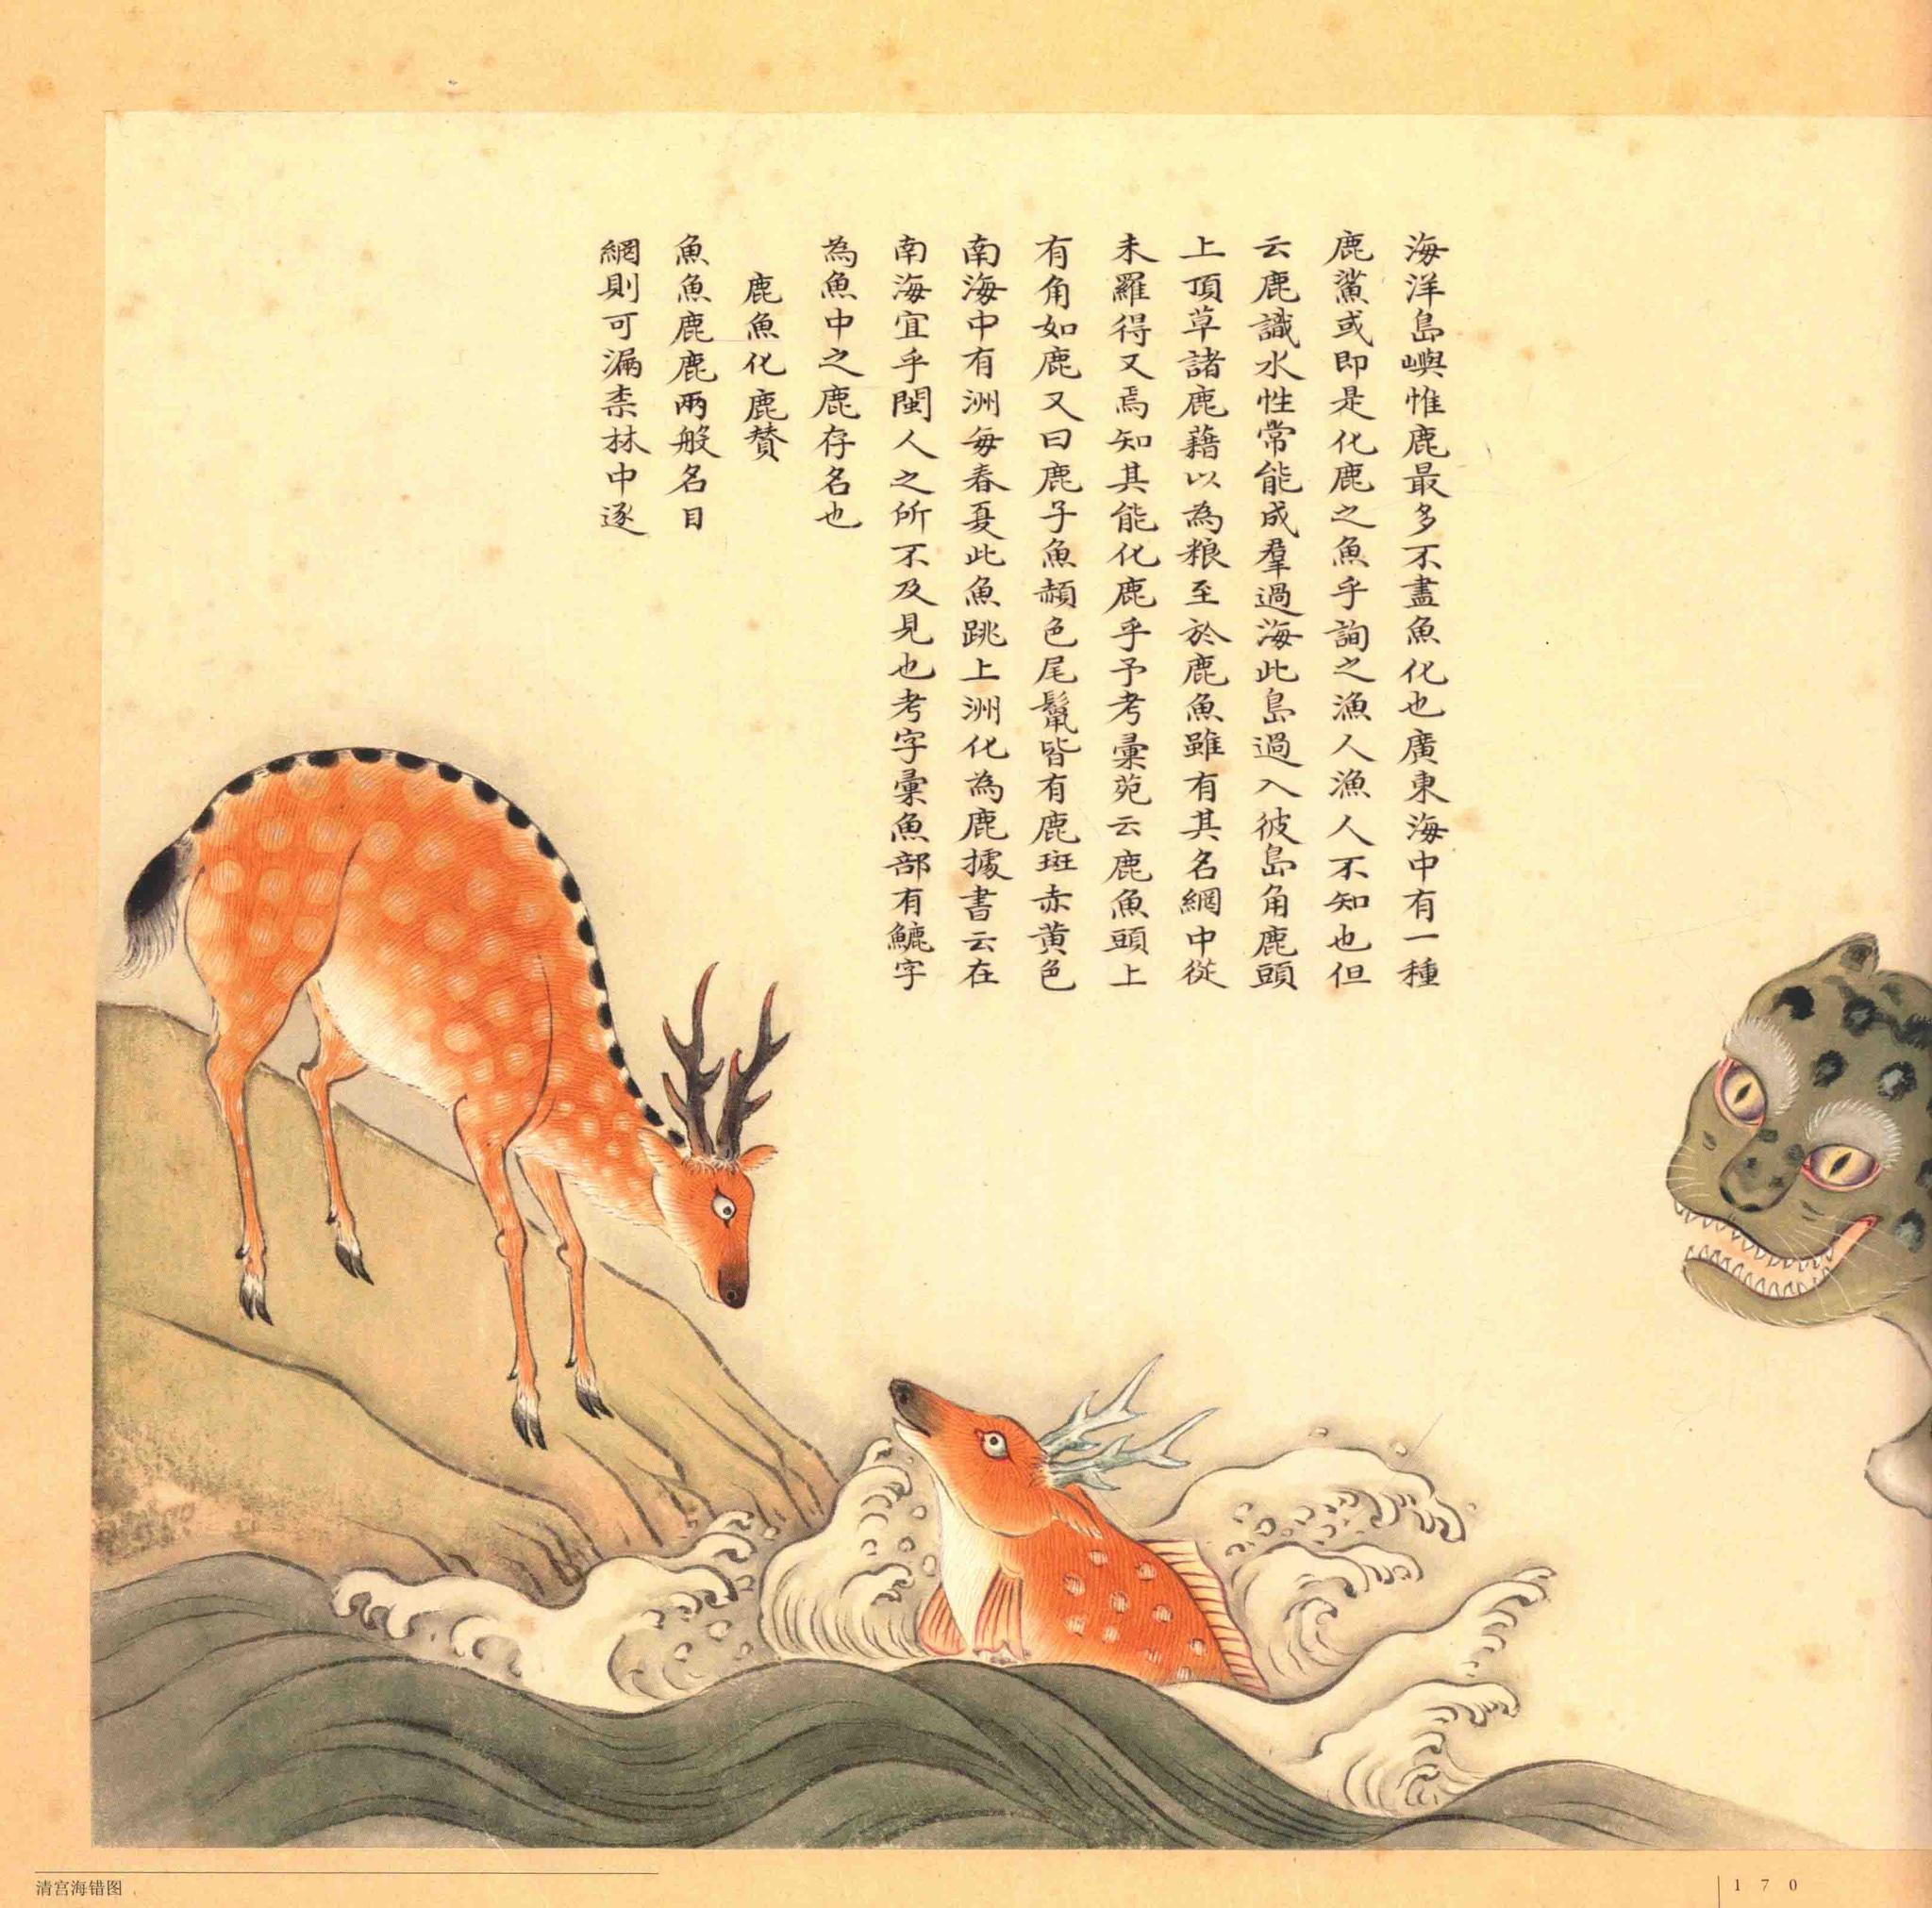 海洋島嶼惟鹿最多不盡魚化也廣東海中有一種
鹿鯊或即是化鹿之魚乎詢之漁人漁人不知也但
云鹿識水性常能成羣過海此島過入彼島角鹿頭
上頂草諸鹿藉以為粮至於鹿魚雖有其名網中從
未羅得又焉知其能化鹿乎予考彙苑云鹿魚頭上
有角如鹿又曰鹿子魚赬色尾鬣皆有鹿斑赤黄色
南海中有洲每春夏此魚跳上洲化為鹿據書云在
南海宜乎閩人之所不及見也考字彙魚部有䴡字
為魚中之鹿存名也
鹿魚化鹿贊
魚魚鹿鹿兩般名目
網則可漏柰林中逐
清宫海错图
170